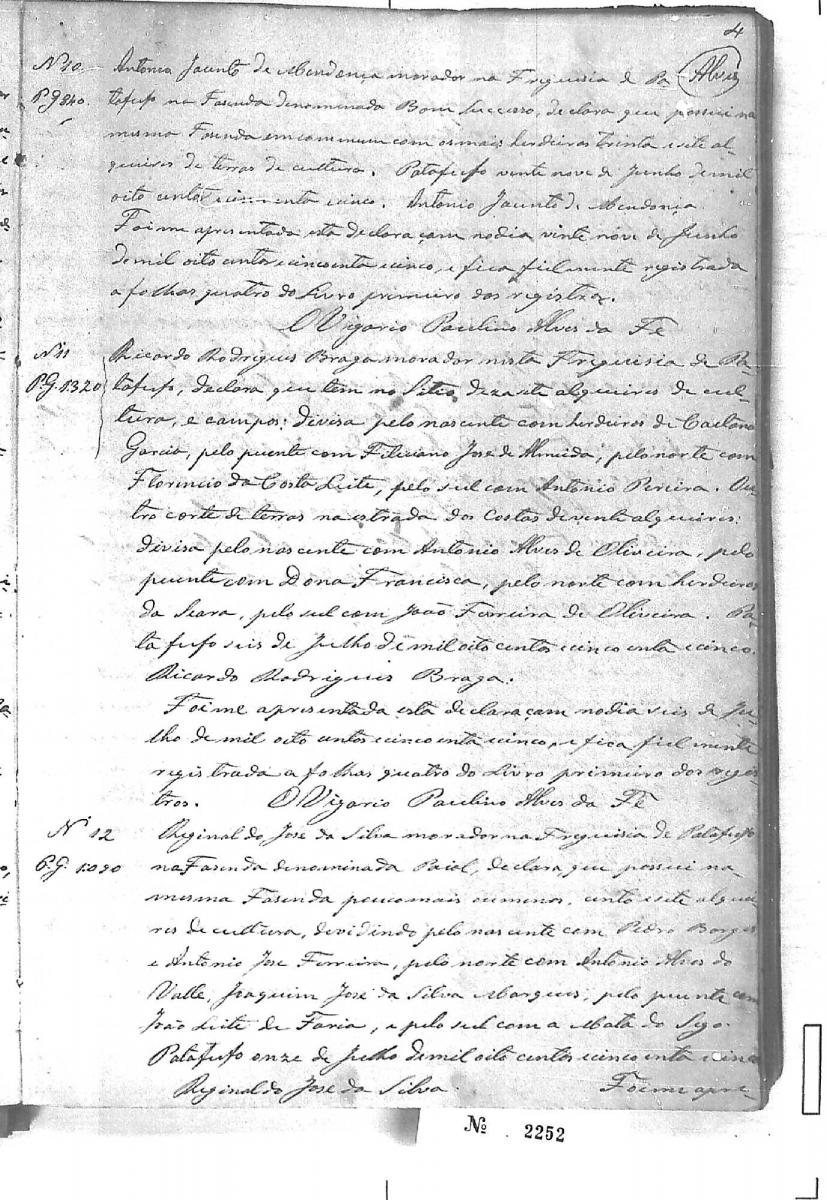 4
Alves
Nº 10
Pg 840.
Antonio Jacinto de Mendonça morador na Freguesia de Pa-
tafufo na Fasenda denominada Bom Sucesso, declara que possui na
mesma Fasenda em commum com os mais herdeiros trinta e sete al-
queires de terras de cultura. Patafufo vente nove de Junho de mil
oito centos cincoenta cinco. Antonio Jacinto de Mendonça
Foi me apresentada esta declaraçam no dia vinte nove de Junho
de mil oito centos e cincoenta cinco, e fica fielmente registrada
a folhas quatro do Livro primeiro dos registros.
O Vigario Paulino Alves da Fé
Nº 11
P.G. 1320
Ricardo Rodrigues Braga morador nesta Freguisia de Pa-
tafufo, declara que tem no Sitio dezasete alqueires de cul-
tura, e campos: divisa pelo nascente com herdeiros de Caetano
Garcia, pelo puente com Filiciano José de Almeida, pelo norte com
Florencio da Costa Leite, pelo sul com Antonio Pereira. Ou-
tro corte de terras na estrada dos Costas de vente alqueires:
divisa pelo nascente com Antonio Alves de Oliveira, pelo
puente com Dona Francisca, pelo norte com herdeiros
da Seara, pelo sul com João Ferreira de Oliveira. Pa-
ta fufo seis de Julho de mil oito centos cinco enta e cinco.
Ricardo Rodrigues Braga.
Foi me apresentada esta declaraçam no dia seis de Ju-
lho de mil oito centos e cinco enta cinco, e fica fielmente
registrada a folhas quatro do Livro primeiro dos regis-
tros. O Vigario Paulino Alves da Fé
Nº 12
P.G. 1:090
Reginaldo José da Silva morador na Freguisia de Patafufo
na Fasenda denominada Paiol, declara, que possui na
mesma Fasenda pouco mais ou menos, cento e sete alquei-
res de cultura, devidindo pelo nascente com Pedro Borges
e Antonio José Ferreira, pelo norte com Antonio Alves do
Valle, Joaquim José da Silva Marques, pelo puente com
João Leite de Faria, e pelo sul com a Mata do
Patafufo onze de Julho de mil oito centos e cinco enta e cinco
Reginaldo José da Silva. Foi me apre-
Nº 2252